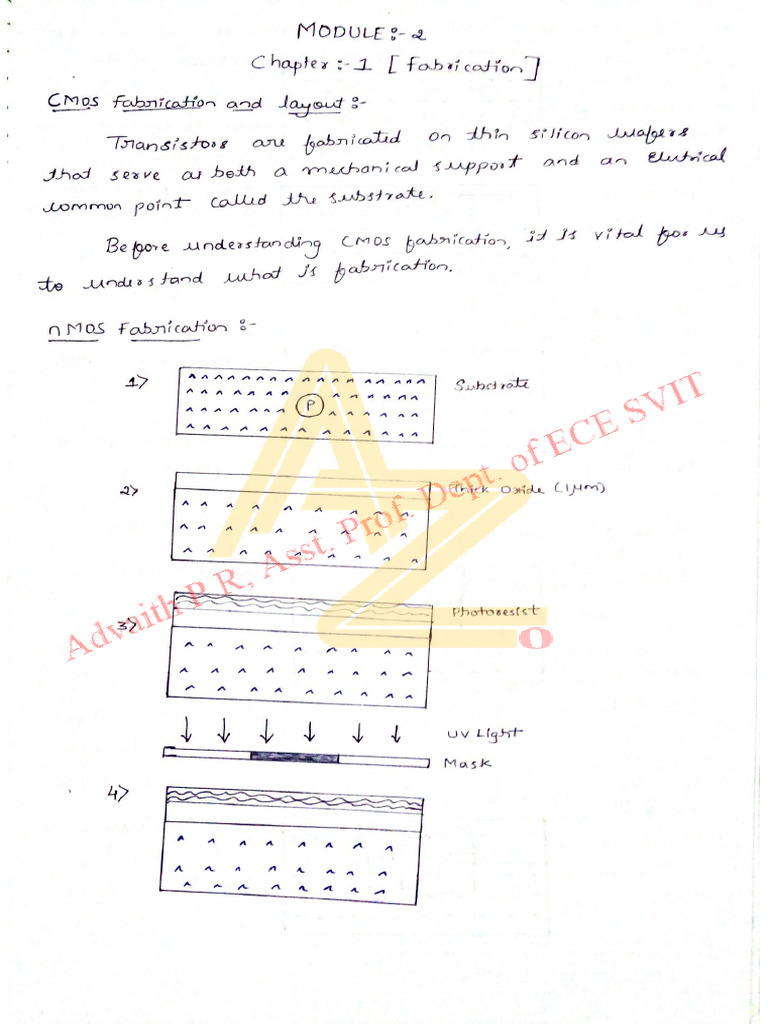 MODULE:- 2
Chapter :- 1 [Fabrication]
CMOS Fabrication and layout :-
Transistors are fabricated on thin silicon wafers
that serve as both a mechanical support and an Eletrical
common point called the substrate.
Before understanding CMOS fabrication, it is vital for us
to understand what is fabrication.
nMOS Fabrication :-
1> P Substrate
2> Thick Oxide (1μm)
3> Photoresist
UV Light
Mask
4>
Advaith P R, Asst. Prof. Dept. of ECE SVIT
AZ
O